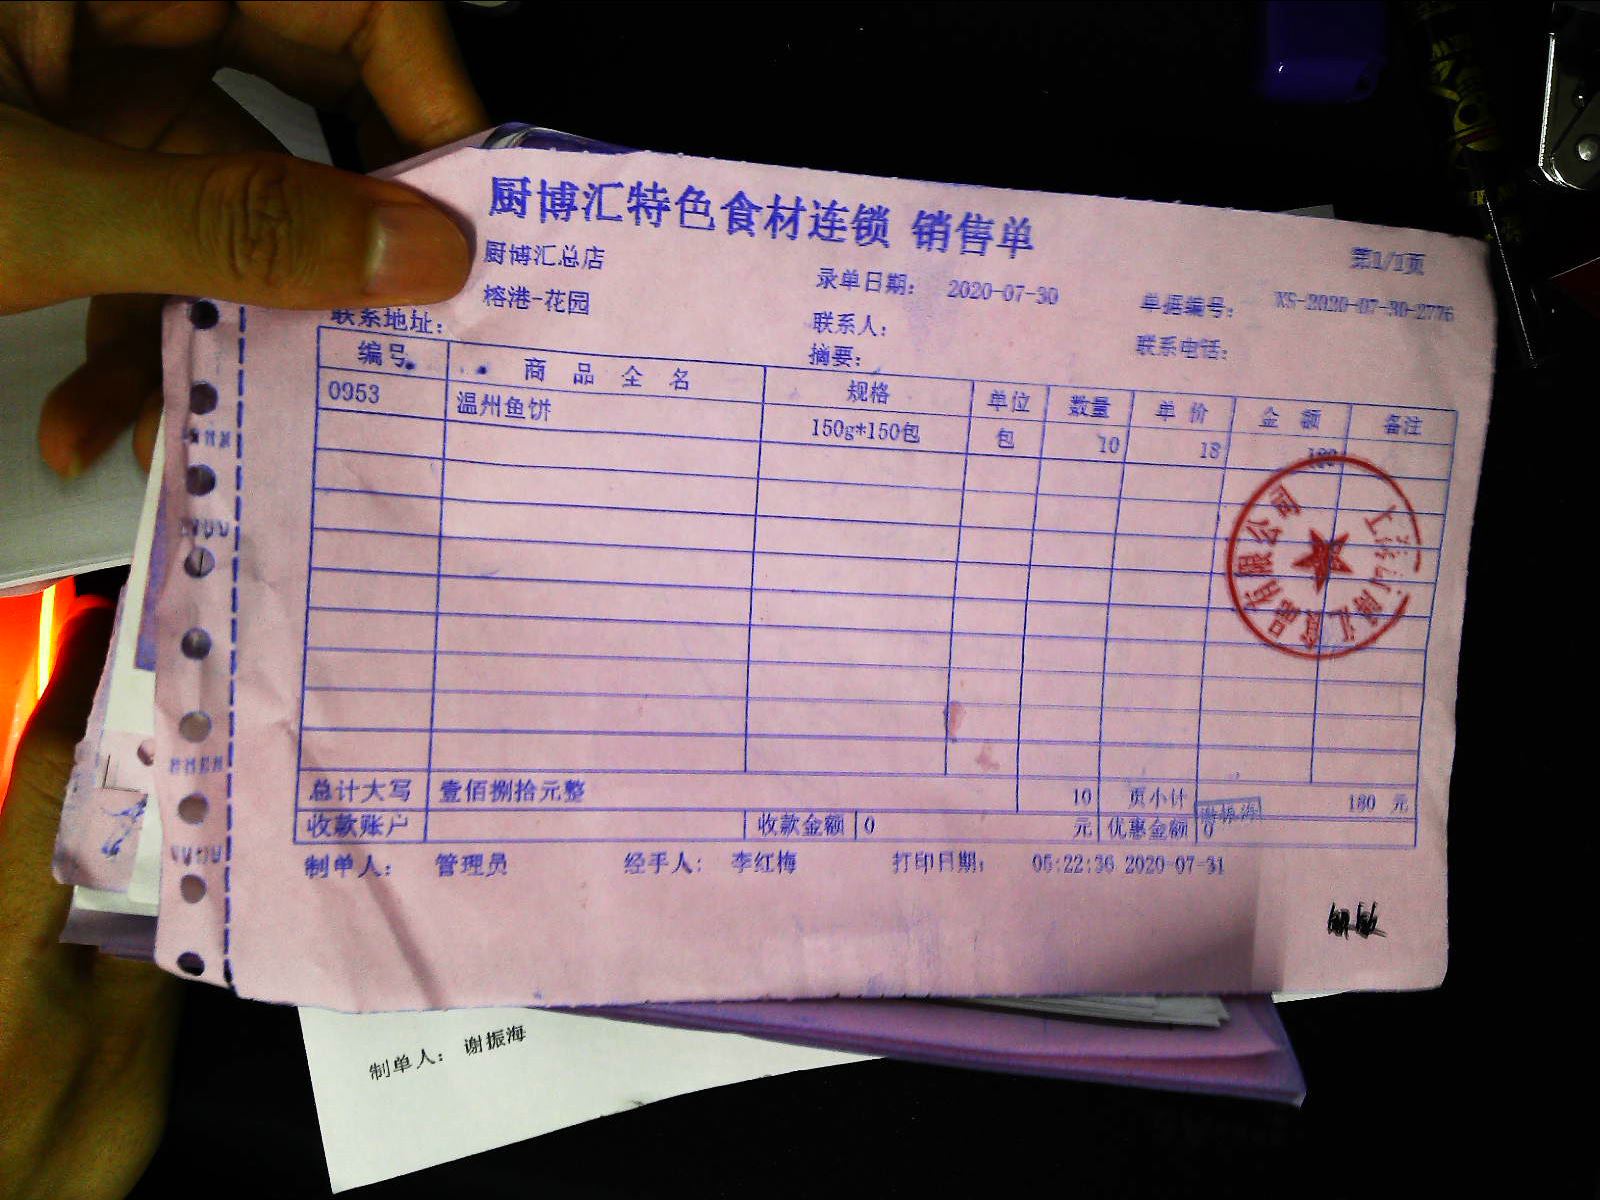 厨博汇特色食材连锁 销售单
第1/1页
厨博汇总店
录单日期： 2020-07-30
单据编号： XS-2020-07-30-2776
榕港-花园
联系人：
联系电话：
联系地址：
摘要：
编号 商品全名 规格 单位 数量 单价 金额 备注
0953 温州鱼饼 150g*150包 包 10 18 180
总计大写 壹佰捌拾元整 10 页小计 180 元
收款账户 收款金额 0 元 优惠金额 0
谢振海
制单人： 管理员 经手人： 李红梅 打印日期： 05:22:36 2020-07-31
制单人： 谢振海